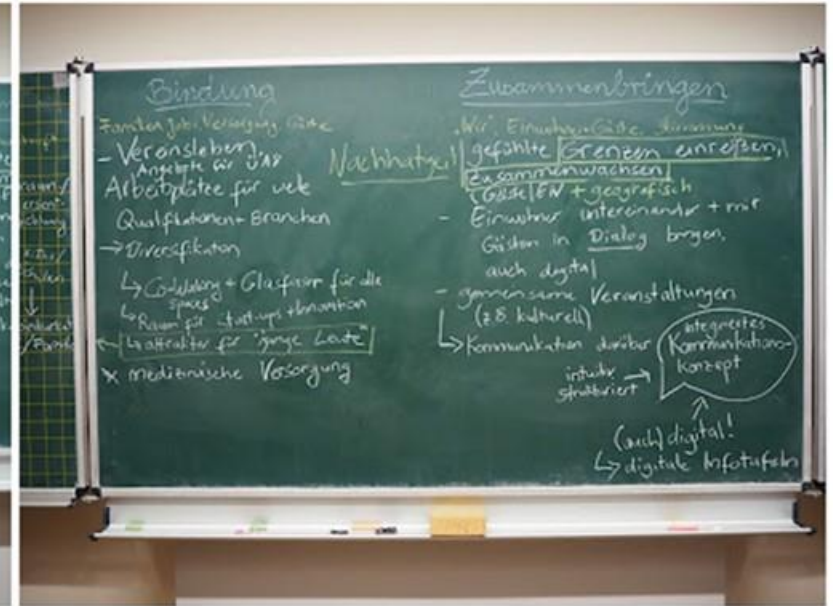 Bindung
Familien, Jobs, Versorgung, Gäste
- Vereinsleben,
Angebote für
Arbeitsplätze für viele
Qualifikationen + Branchen
→ Diversifikation
↳ Coworking + Glasfaser für alle
spaces
↳ Raum für Start-ups + Innovation
↳ attraktiv für "junge Leute"
medizinische Versorgung
Zusammenbringen
"Wir", Einwohner Gäste
Nachhaltigkeit
gefühlte Grenzen einreißen,
zusammenwachsen
(Gäste/EW + geografisch
- Einwohner untereinander + mit
Gästen in Dialog bringen,
auch digital
- gemeinsame Veranstaltungen
(z.B. kulturell)
↳ Kommunikation darüber
integriertes
Kommunikations-
konzept
intuitiv →
strukturiert
(auch) digital!
↳ digitale Infotafeln